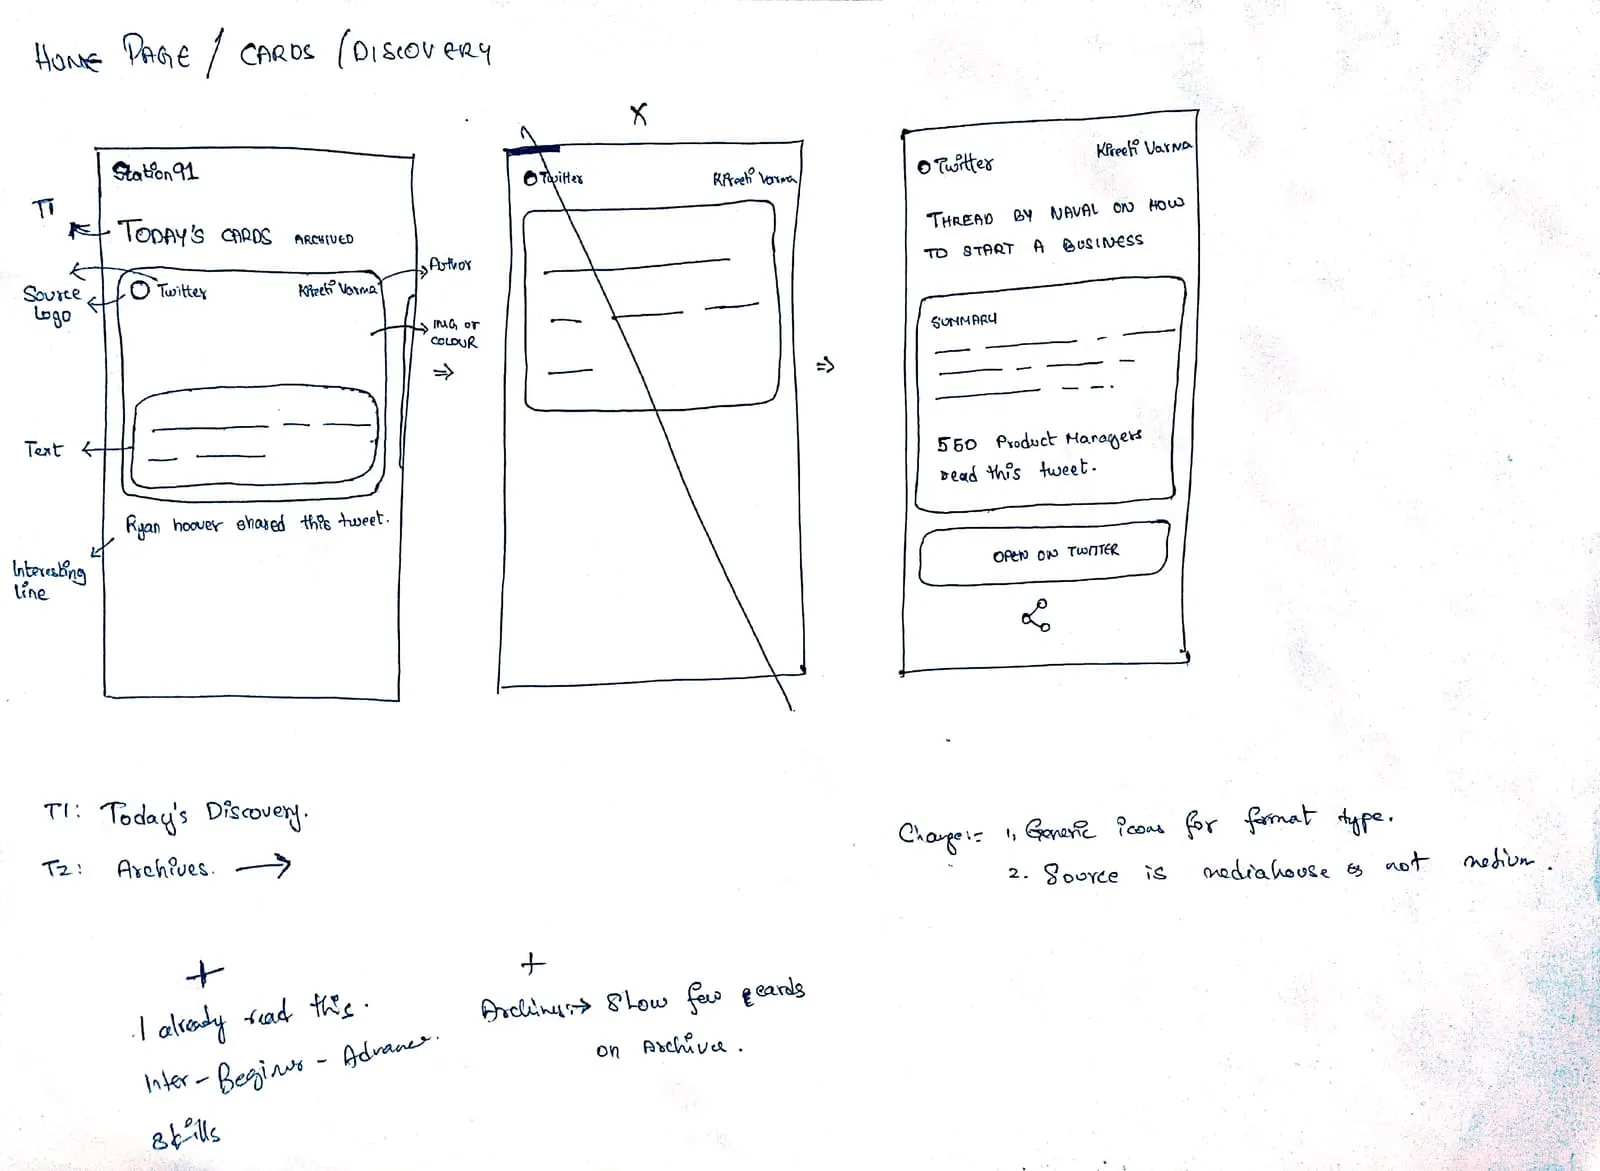 HOME PAGE / CARDS / DISCOVERY
X
Station91
T1
TODAY'S CARDS ARCHIVED
Source
Logo
Twitter
Kireeti Varma
Author
IMG OR
COLOUR
⇒
Text
Ryan hoover shared this tweet.
Interesting
line
Twitter
Kireeti Varma
⇒
Twitter
Kireeti Varma
THREAD BY NAVAL ON HOW
TO START A BUSINESS
SUMMARY
550 Product Managers
read this tweet.
OPEN ON TWITTER
T1: Today's Discovery.
T2: Archives. →
Change:- 1, Generic icons for format type.
2. Source is mediahouse & not medium.
+
I already read this.
Inter - Beginer - Advance.
skills
+
Archives → Show few cards
on Archive.